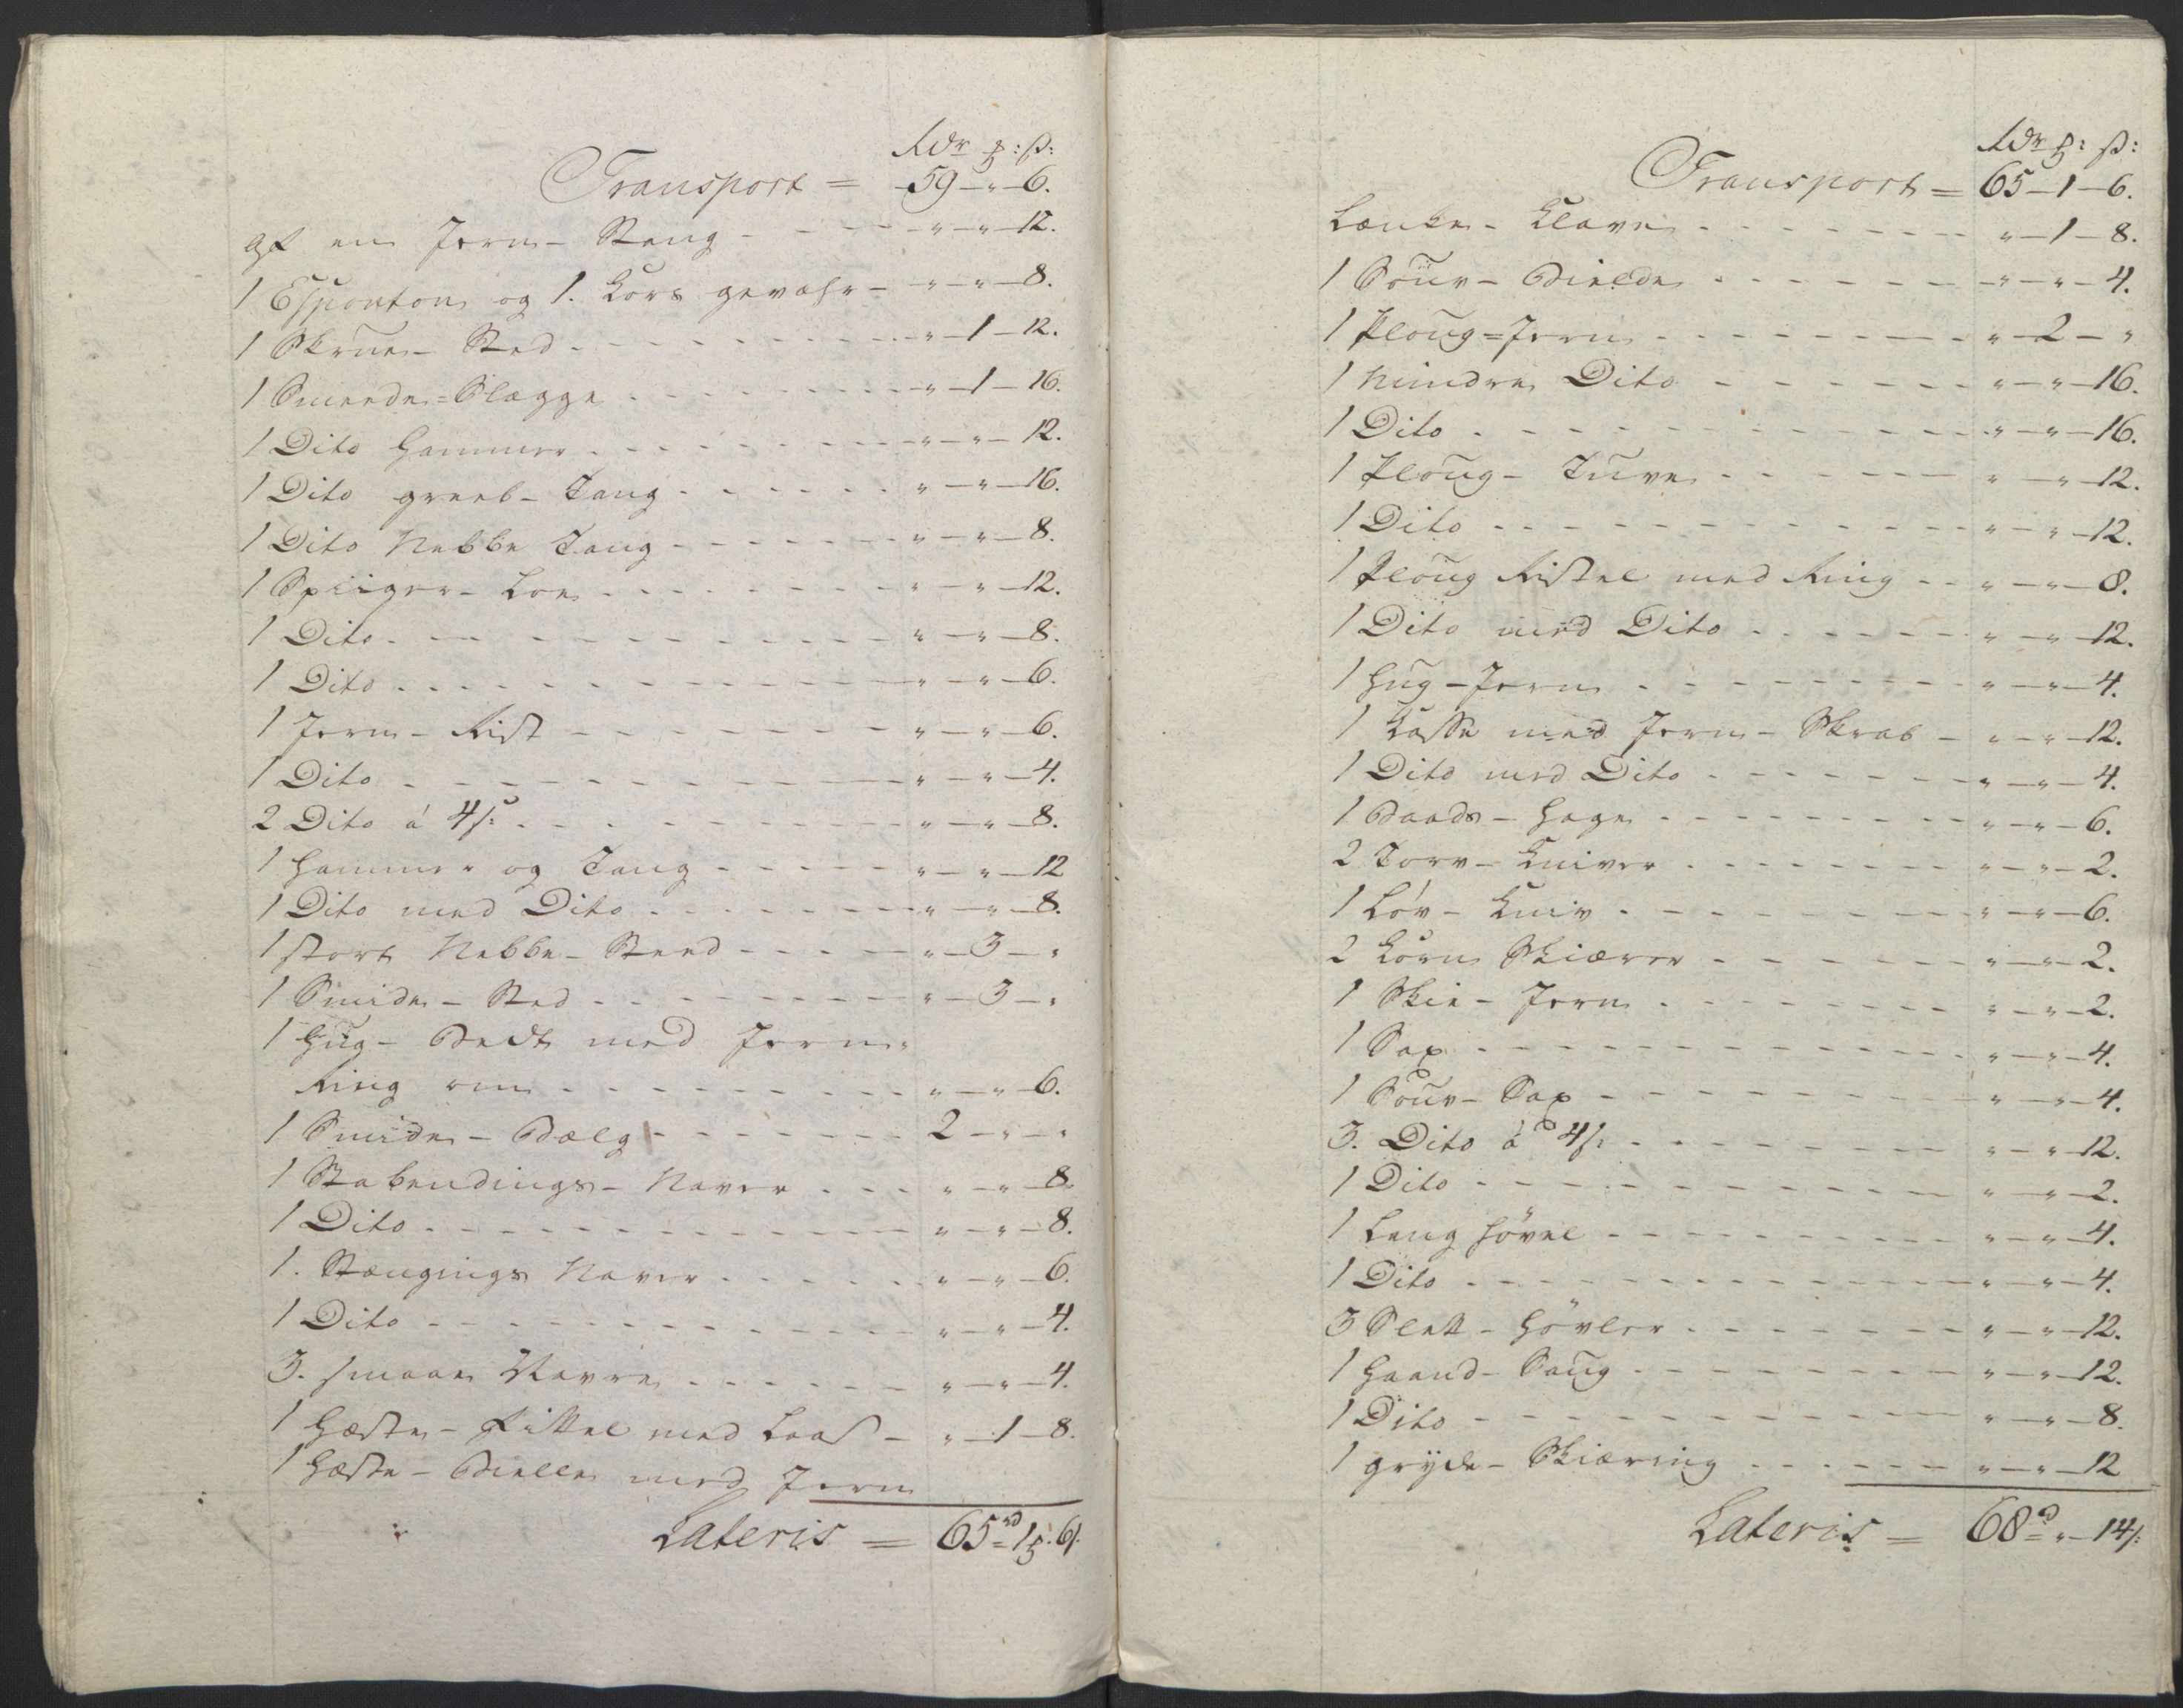 Rdr ℥: ß:
Transport = 59 — " — 6.
Af en Jern - Stang - - - - " — " — 12.
1 Esponton og 1. Kors gevæhr - " — " — 8.
1 Skrue - Sted - - - - " — 1 — 12.
1 Smede = Slægge - - - - " — 1 — 16.
1 Dito Hammer - - - - " — " — 12.
1 Dito greeb - Tang - - - - " — " — 16.
1 Dito Nebbe Tang - - - - " — " — 8.
1 Spiiger - Loe - - - - " — " — 12.
1 Dito - - - - " — " — 8.
1 Dito - - - - " — " — 6.
1 Jern - Rist - - - - " — " — 6.
1 Dito - - - - " — " — 4.
2 Dito á 4 ß: - - - - " — " — 8.
1 Hammer og Tang - - - - " — " — 12
1 Dito med Dito - - - - " — " — 8.
1 stort Nebbe - Steed - - - - " — 3 — "
1 Smide - Sted - - - - " — 3 — "
1 Hug - Bedt med Jern
Ring om - - - - " — " — 6.
1 Smide - Bælg - - - - 2 — " — "
1 Stabendings - Naver - - - " — " — 8.
1 Dito - - - - " — " — 8.
1. Stængings Naver - - - - " — " — 6.
1 Dito - - - - " — " — 4.
3. smaae Navre - - - - " — " — 4.
1 Hæste - Fittel med Laas - " — 1 — 8.
1 Hæste - Bielle med Jern
Lateris = 65 rd 1 ℥. 6 ß:
Rdr ℥: ß:
Transport = 65 — 1 — 6.
Lænke - Klave - - - - " — 1 — 8.
1 Souv - Bielde - - - - " — " — 4.
1 Ploug = Jern - - - - " — 2 — "
1 mindre Dito - - - - " — " — 16.
1 Dito - - - - " — " — 16.
1 Ploug - Tuve - - - - " — " — 12.
1 Dito - - - - " — " — 12.
1 Ploug Ristel med Ring - - " — " — 8.
1 Dito med Dito - - - - " — " — 12.
1 Hug - Jern - - - - " — " — 4.
1 Kasse med Jern - Skrab - " — " — 12.
1 Dito med Dito - - - - " — " — 4.
1 Baads - Hage - - - - " — " — 6.
2 Torv - Kniver - - - - " — " — 2.
1 Løv - Kniv - - - - " — " — 6.
2 Korn Skiærer - - - - " — " — 2.
1 Skie - Jern - - - - " — " — 2.
1 Sax - - - - " — " — 4.
1 Souv - Sax - - - - " — " — 4.
3. Dito á 4 ß: - - - - " — " — 12.
1 Dito - - - - " — " — 2.
1 Lang høvel - - - - " — " — 4.
1 Dito - - - - " — " — 4.
3 Slett - Høvler - - - - " — " — 12.
1 Haand - Saug - - - - " — " — 12.
1 Dito - - - - " — " — 8.
1 gryde - Skiæring - - - - " — " — 12
Lateris = 68 rd " — 14 ß: